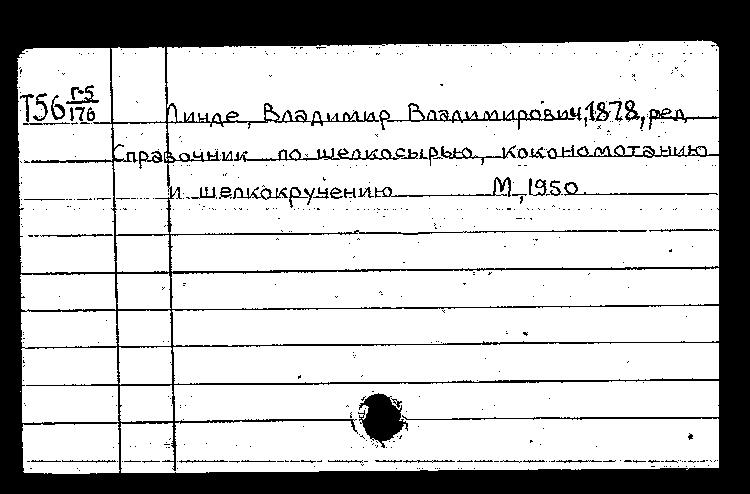 Т56 Г-5/176
Линде, Владимир Владимирович, 1878, ред
Справочник по шелкосырью, кокономотанию
и шелкокручению М, 1950.